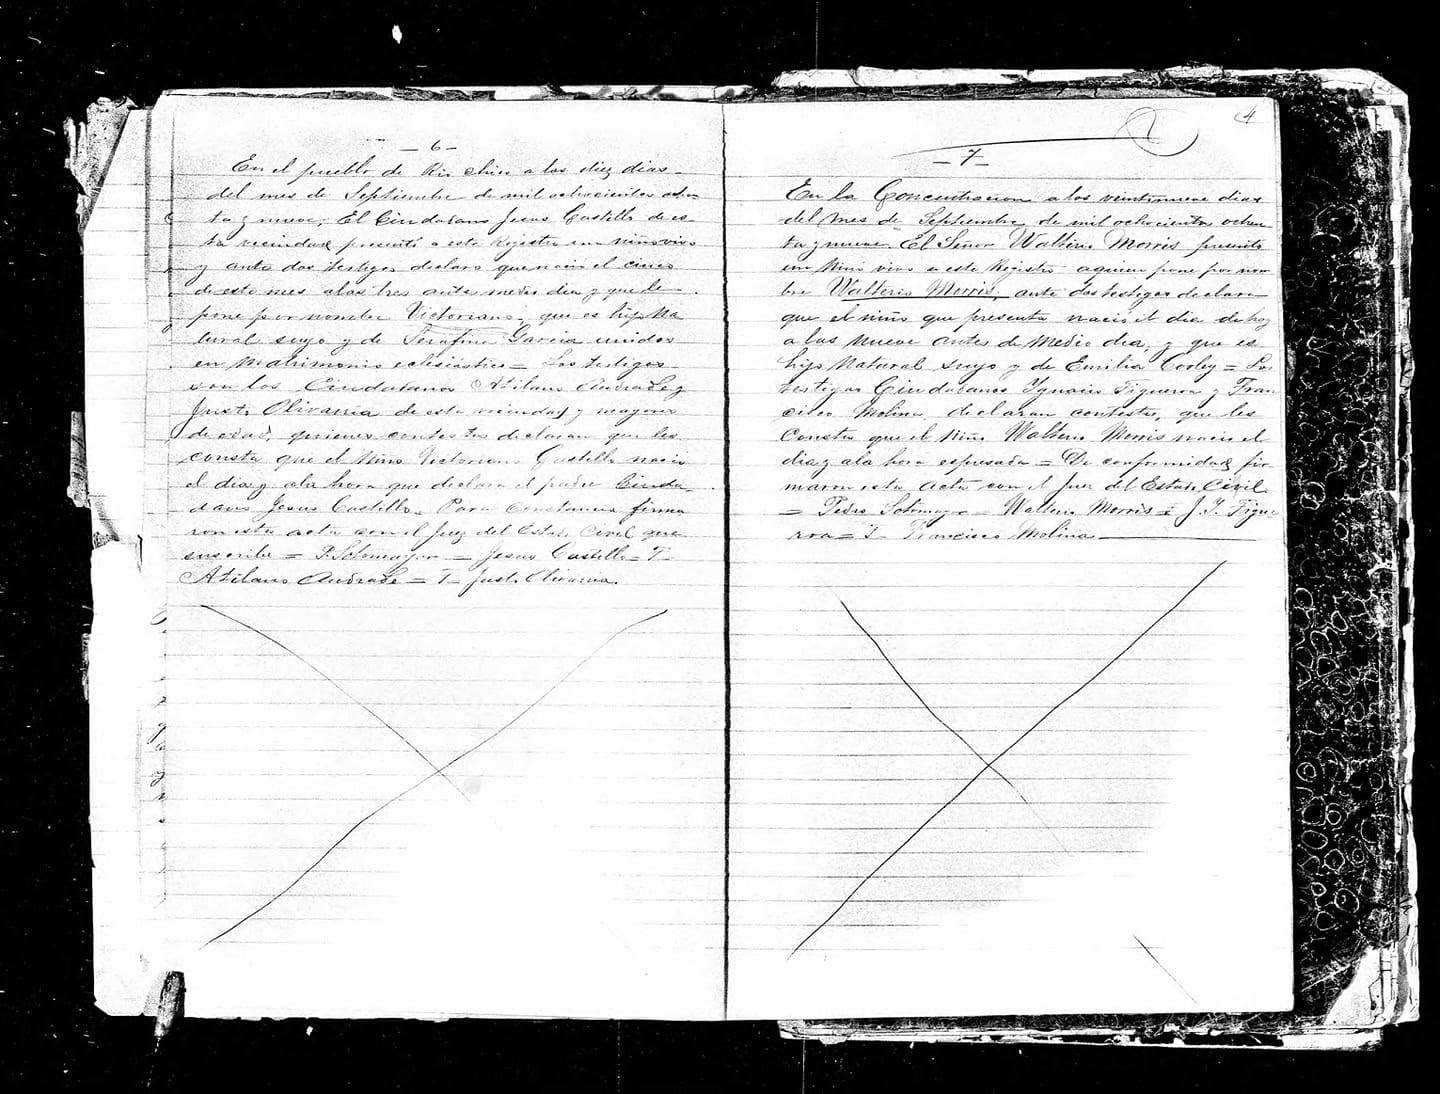 — 6 —
En el pueblo de Rio chico a los diez dias
del mes de Septiembre de mil ochocientos ochen
ta y nueve, El Ciudadano Jesus Castillo de es
ta vecindad presentó a este Registro un niño vivo
y ante dos testigos declaro que nacio el cinco
de este mes a las tres ante medio dia y que le
pone por nombre Victoriano, que es hijo Na
tural suyo y de Serafina Garcia unidos
en matrimonio eclesiástico = Los testigos
son los Ciudadanos Atilano Andrade y
Justo Olivarria de esta vecindad y mayores
de edad, quienes contestes declaran que les
consta que el Niño Victoriano Castillo nacio
el dia y ala hora que declara el padre Ciuda
dano Jesus Castillo = Para Constancia firma
ron esta acta con el Juez del Estado Civil que
suscribe = P. Sotomayor = Jesus Castillo = T=
Atilano Andrade = T= Justo Olivarria.
4
— 7 —
En la Concentracion a los veintinueve dias
del mes de Septiembre de mil ochocientos ochen
ta y nueve El Señor Walterio Morris presentó
un Niño vivo a este Registro aquien pone por nom
bre Walterio Morris, ante dos testigos declara
que el niño que presenta nació el dia de hoy
a las nueve antes de medio dia, y que es
hijo Natural suyo y de Emilia Corley = Los
testigos Ciudadanos Ygnacio Figueroa y Fran
cisco Molina, declaran contestes, que les
Consta que el Niño Walterio Morris nacio el
dia y ala hora espresada = De conformidad fir
maron esta acta con el Juez del Estado Civil.
= Pedro Sotomayor = Walterio Morris = J. Y. Figue
roa = T= Francisco Molina